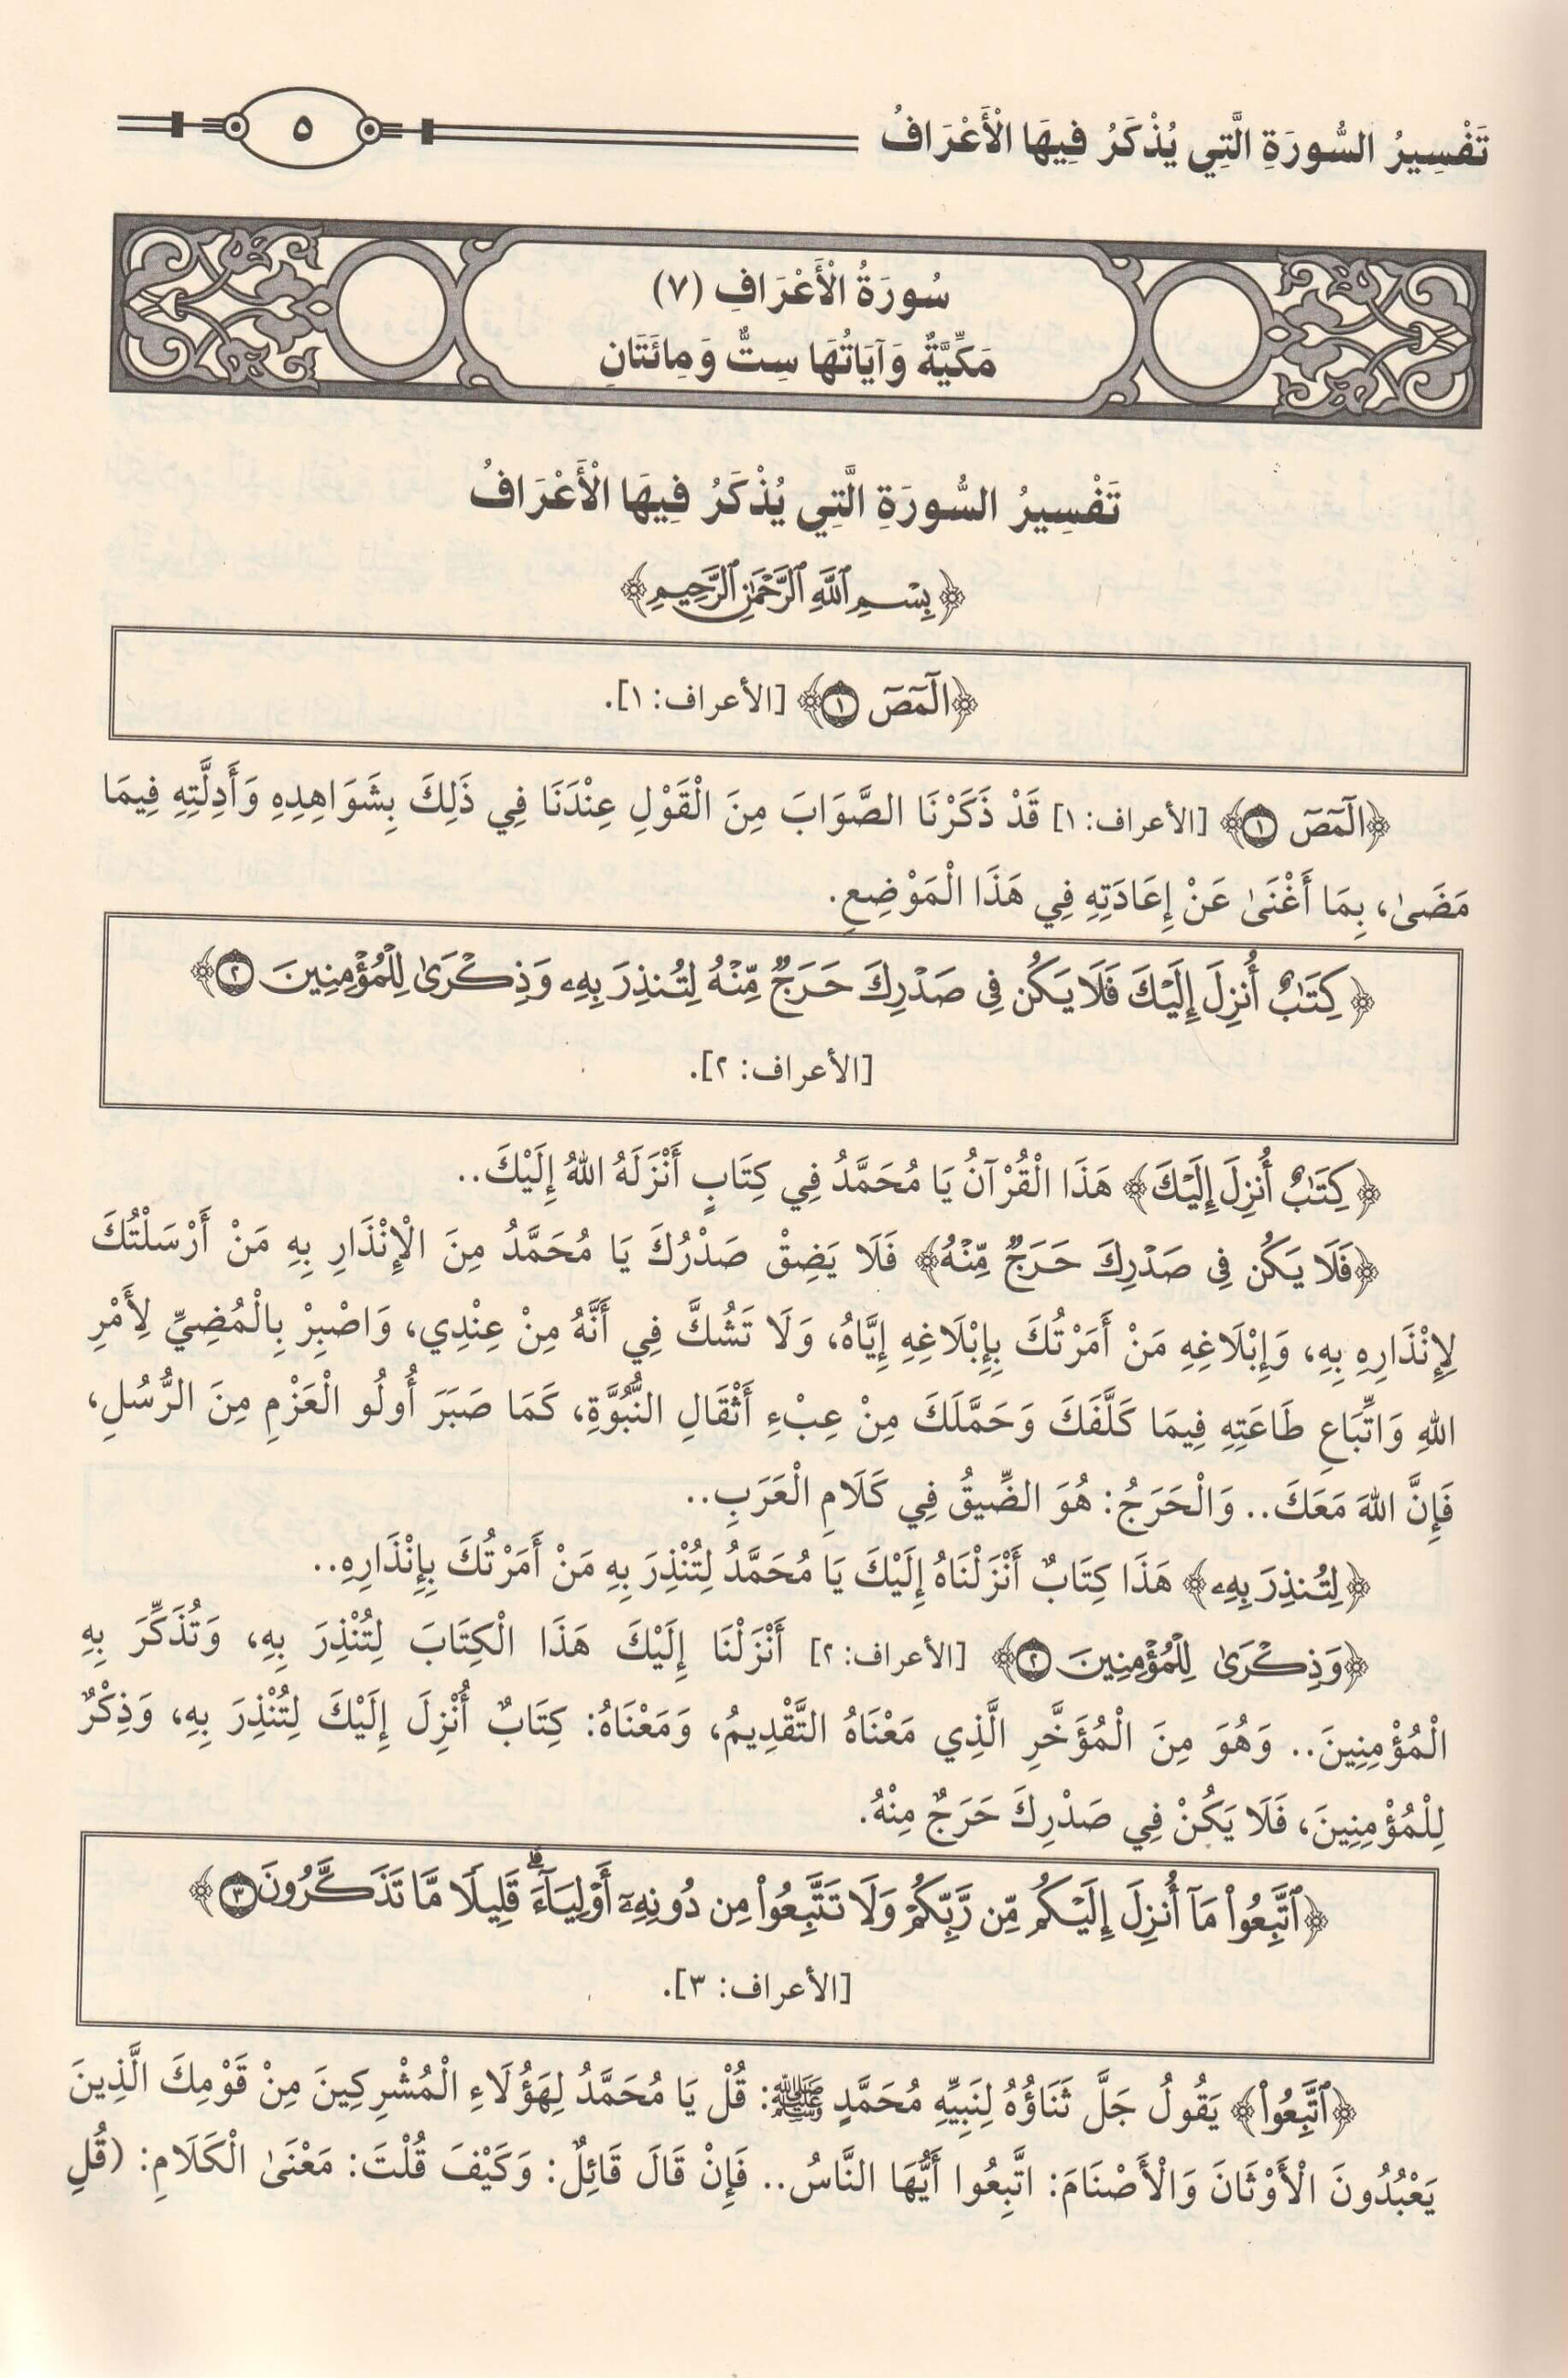 تَفْسِيرُ السُّورَةِ الَّتِي يُذْكَرُ فِيهَا الْأَعْرَافُ ٥
سُورَةُ الْأَعْرَافِ (٧)
مَكِّيَّةٌ وَآيَاتُهَا سِتٌّ وَمِائَتَانِ
تَفْسِيرُ السُّورَةِ الَّتِي يُذْكَرُ فِيهَا الْأَعْرَافُ
﴿بِسْمِ ٱللَّهِ ٱلرَّحْمَٰنِ ٱلرَّحِيمِ﴾
﴿الٓمٓصٓ ١﴾ [الأعراف: ١].
﴿الٓمٓصٓ ١﴾ [الأعراف: ١] قَدْ ذَكَرْنَا الصَّوَابَ مِنَ الْقَوْلِ عِنْدَنَا فِي ذَلِكَ بِشَوَاهِدِهِ وَأَدِلَّتِهِ فِيمَا
مَضَىٰ، بِمَا أَغْنَىٰ عَنْ إِعَادَتِهِ فِي هَذَا الْمَوْضِعِ.
﴿كِتَٰبٌ أُنزِلَ إِلَيْكَ فَلَا يَكُن فِى صَدْرِكَ حَرَجٌ مِّنْهُ لِتُنذِرَ بِهِۦ وَذِكْرَىٰ لِلْمُؤْمِنِينَ ٢﴾
[الأعراف: ٢].
﴿كِتَٰبٌ أُنزِلَ إِلَيْكَ﴾ هَذَا الْقُرْآنُ يَا مُحَمَّدُ فِي كِتَابٍ أَنْزَلَهُ اللهُ إِلَيْكَ..
﴿فَلَا يَكُن فِى صَدْرِكَ حَرَجٌ مِّنْهُ﴾ فَلَا يَضِقْ صَدْرُكَ يَا مُحَمَّدُ مِنَ الْإِنْذَارِ بِهِ مَنْ أَرْسَلْتُكَ
لِإِنْذَارِهِ بِهِ، وَإِبْلَاغِهِ مَنْ أَمَرْتُكَ بِإِبْلَاغِهِ إِيَّاهُ، وَلَا تَشُكَّ فِي أَنَّهُ مِنْ عِنْدِي، وَاصْبِرْ بِالْمُضِيِّ لِأَمْرِ
اللهِ وَاتِّبَاعِ طَاعَتِهِ فِيمَا كَلَّفَكَ وَحَمَّلَكَ مِنْ عِبْءِ أَثْقَالِ النُّبُوَّةِ، كَمَا صَبَرَ أُولُو الْعَزْمِ مِنَ الرُّسُلِ،
فَإِنَّ اللهَ مَعَكَ.. وَالْحَرَجُ: هُوَ الضِّيقُ فِي كَلَامِ الْعَرَبِ..
﴿لِتُنذِرَ بِهِۦ﴾ هَذَا كِتَابٌ أَنْزَلْنَاهُ إِلَيْكَ يَا مُحَمَّدُ لِتُنْذِرَ بِهِ مَنْ أَمَرْتُكَ بِإِنْذَارِهِ..
﴿وَذِكْرَىٰ لِلْمُؤْمِنِينَ ٢﴾ [الأعراف: ٢] أَنْزَلْنَا إِلَيْكَ هَذَا الْكِتَابَ لِتُنْذِرَ بِهِ، وَتُذَكِّرَ بِهِ
الْمُؤْمِنِينَ.. وَهُوَ مِنَ الْمُؤَخَّرِ الَّذِي مَعْنَاهُ التَّقْدِيمُ، وَمَعْنَاهُ: كِتَابٌ أُنْزِلَ إِلَيْكَ لِتُنْذِرَ بِهِ، وَذِكْرٌ
لِلْمُؤْمِنِينَ، فَلَا يَكُنْ فِي صَدْرِكَ حَرَجٌ مِنْهُ.
﴿ٱتَّبِعُوا۟ مَآ أُنزِلَ إِلَيْكُم مِّن رَّبِّكُمْ وَلَا تَتَّبِعُوا۟ مِن دُونِهِۦٓ أَوْلِيَآءَ ۗ قَلِيلًا مَّا تَذَكَّرُونَ ٣﴾
[الأعراف: ٣].
﴿ٱتَّبِعُوا۟﴾ يَقُولُ جَلَّ ثَنَاؤُهُ لِنَبِيِّهِ مُحَمَّدٍ ﷺ: قُلْ يَا مُحَمَّدُ لِهَؤُلَاءِ الْمُشْرِكِينَ مِنْ قَوْمِكَ الَّذِينَ
يَعْبُدُونَ الْأَوْثَانَ وَالْأَصْنَامَ: اتَّبِعُوا أَيُّهَا النَّاسُ.. فَإِنْ قَالَ قَائِلٌ: وَكَيْفَ قُلْتَ: مَعْنَىٰ الْكَلَامِ: (قُلِ